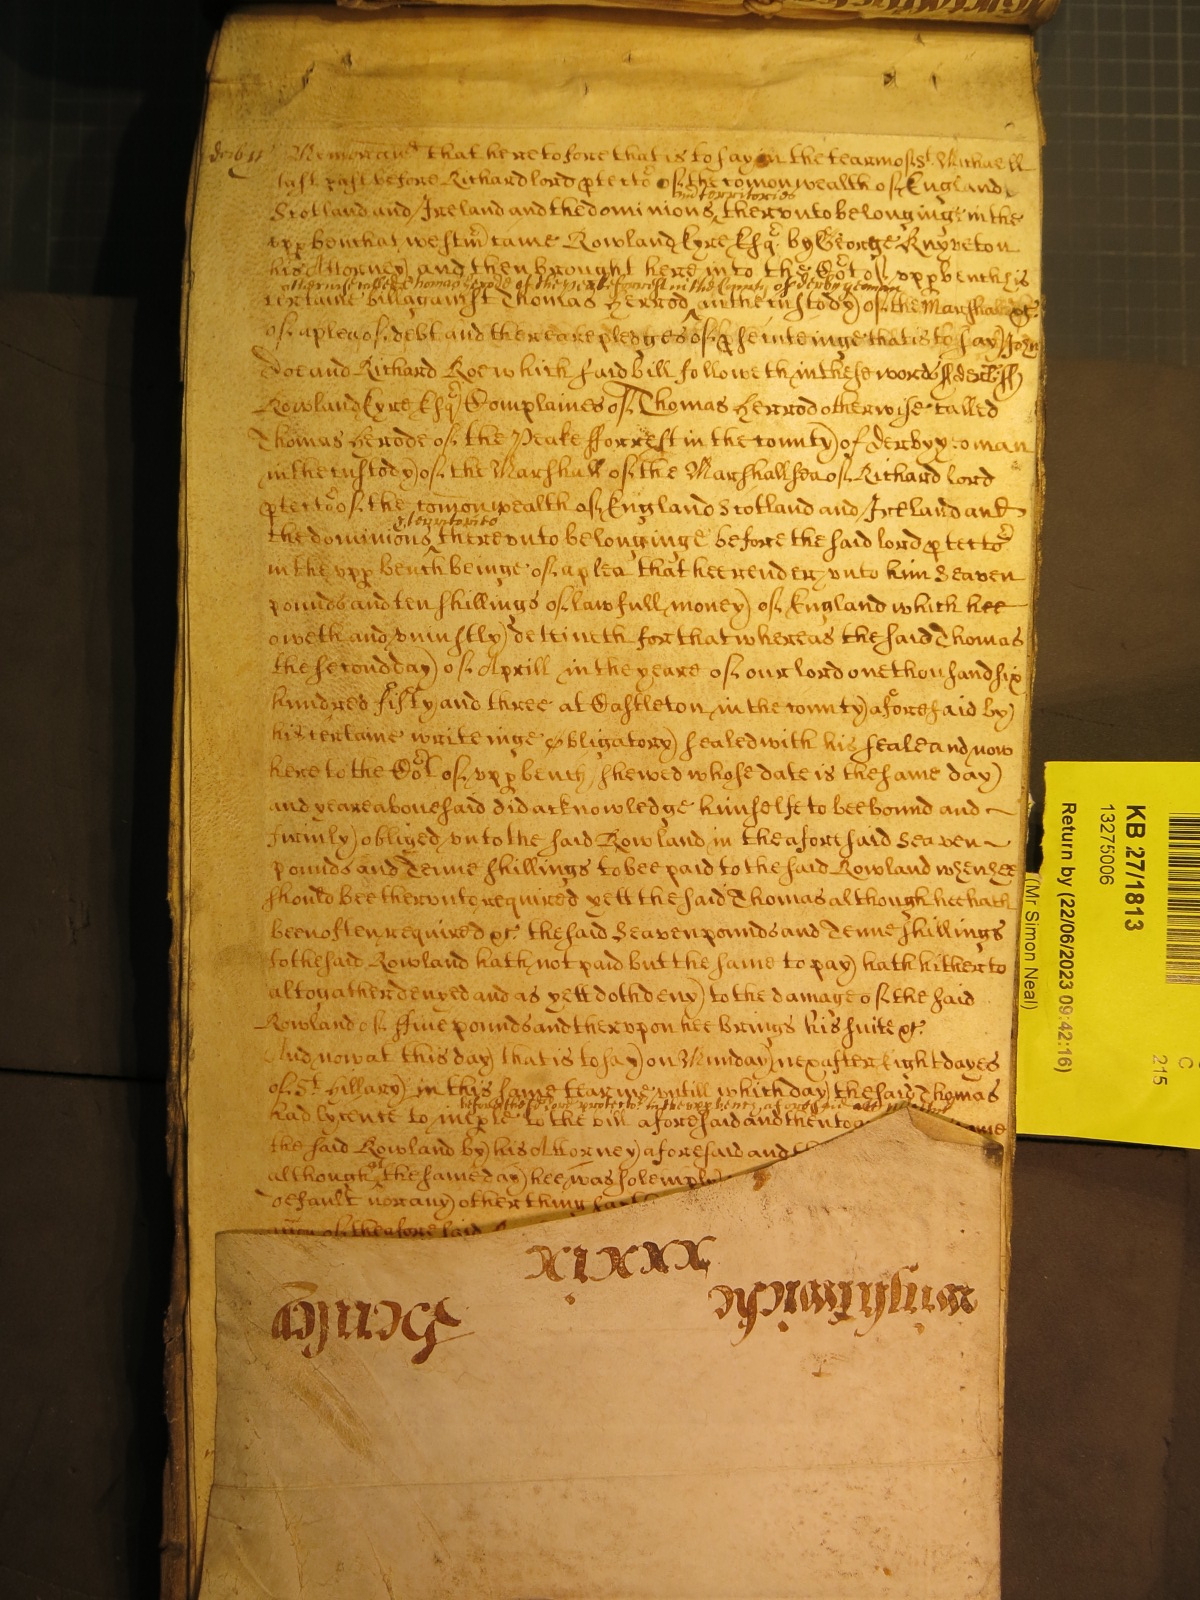 derb ss Memorand that heretofore that is to say in the tearme of St. Michaell
last past before Richard lord ptector of the comonwealth of England
Scotland and Ireland and the dominions and territories thervnto belonginge in the
vpp bench at westm came Rowland Eyre Esqr. by George Knyveton
his Attorney and then brought here into the Cort of vpp bench his
otherwise called Thomas Herode of the Peake forrest in the County of derby yeoman
certaine bill against Thomas Herrod in the custody of the Marshall &c.
of a plea of debt and there are pledges of psecuteinge that is to say John
Doe and Richard Roe which said bill followeth in these words ss derb ss
Rowland Eyre Esqr Complaines of Thomas Herrod otherwise called
Thomas Herode of the Peake fforrest in the county of derby yeoman
in the custody of the Marshall of the Marshallsea of Richard lord
ptector of the comonwealth of England Scotland and Ireland and
& territories
the dominions therevnto belonginge before the said lord ptector
in the vpp bench beinge of a plea that hee render vnto him Seaven
pounds and ten shillings of lawfull money of England which hee
oweth and vniustly detineth for that whereas the said Thomas
the second day of Aprill in the yeare of our lord one thousand six
hundred fifty and three at Castleton in the county aforesaid by
his certaine writeinge obligatory sealed with his seale and now
here to the Cort of vpp bench shewed whose date is the same day
and yeare aboue said did acknowledge himselfe to bee bound and
firmly obliged vnto the said Rowland in the aforesaid Seaven
pounds and Tenne shillings to bee paid to the said Rowland when hee
should bee thervnto required yett the said Thomas although hee hath
been often required &c. the said Seaven pounds and Tenne shillings
to the said Rowland hath not paid but the same to pay hath hitherto
altogather denyed and as yett doth deny to the damage of the said
Rowland of ffiue pounds and thervpon hee brings his suite &c.
And now at this day that is to say on Munday next after Eight dayes
of St. Hillary in this same tearme vntill which day the said Thomas
before the lord protector in the vpp bench aforesaid att
had lycence to imple to the bill aforesaid and then to a came
the said Rowland by his Attorney aforesaid and
although att the same day hee was solemply
default nor any other thing
of the aforesaid
xixxx
KB 27/1813
13275006
Return by (22/06/2023 09:42:16)
(Mr Simon Neal)
C
215